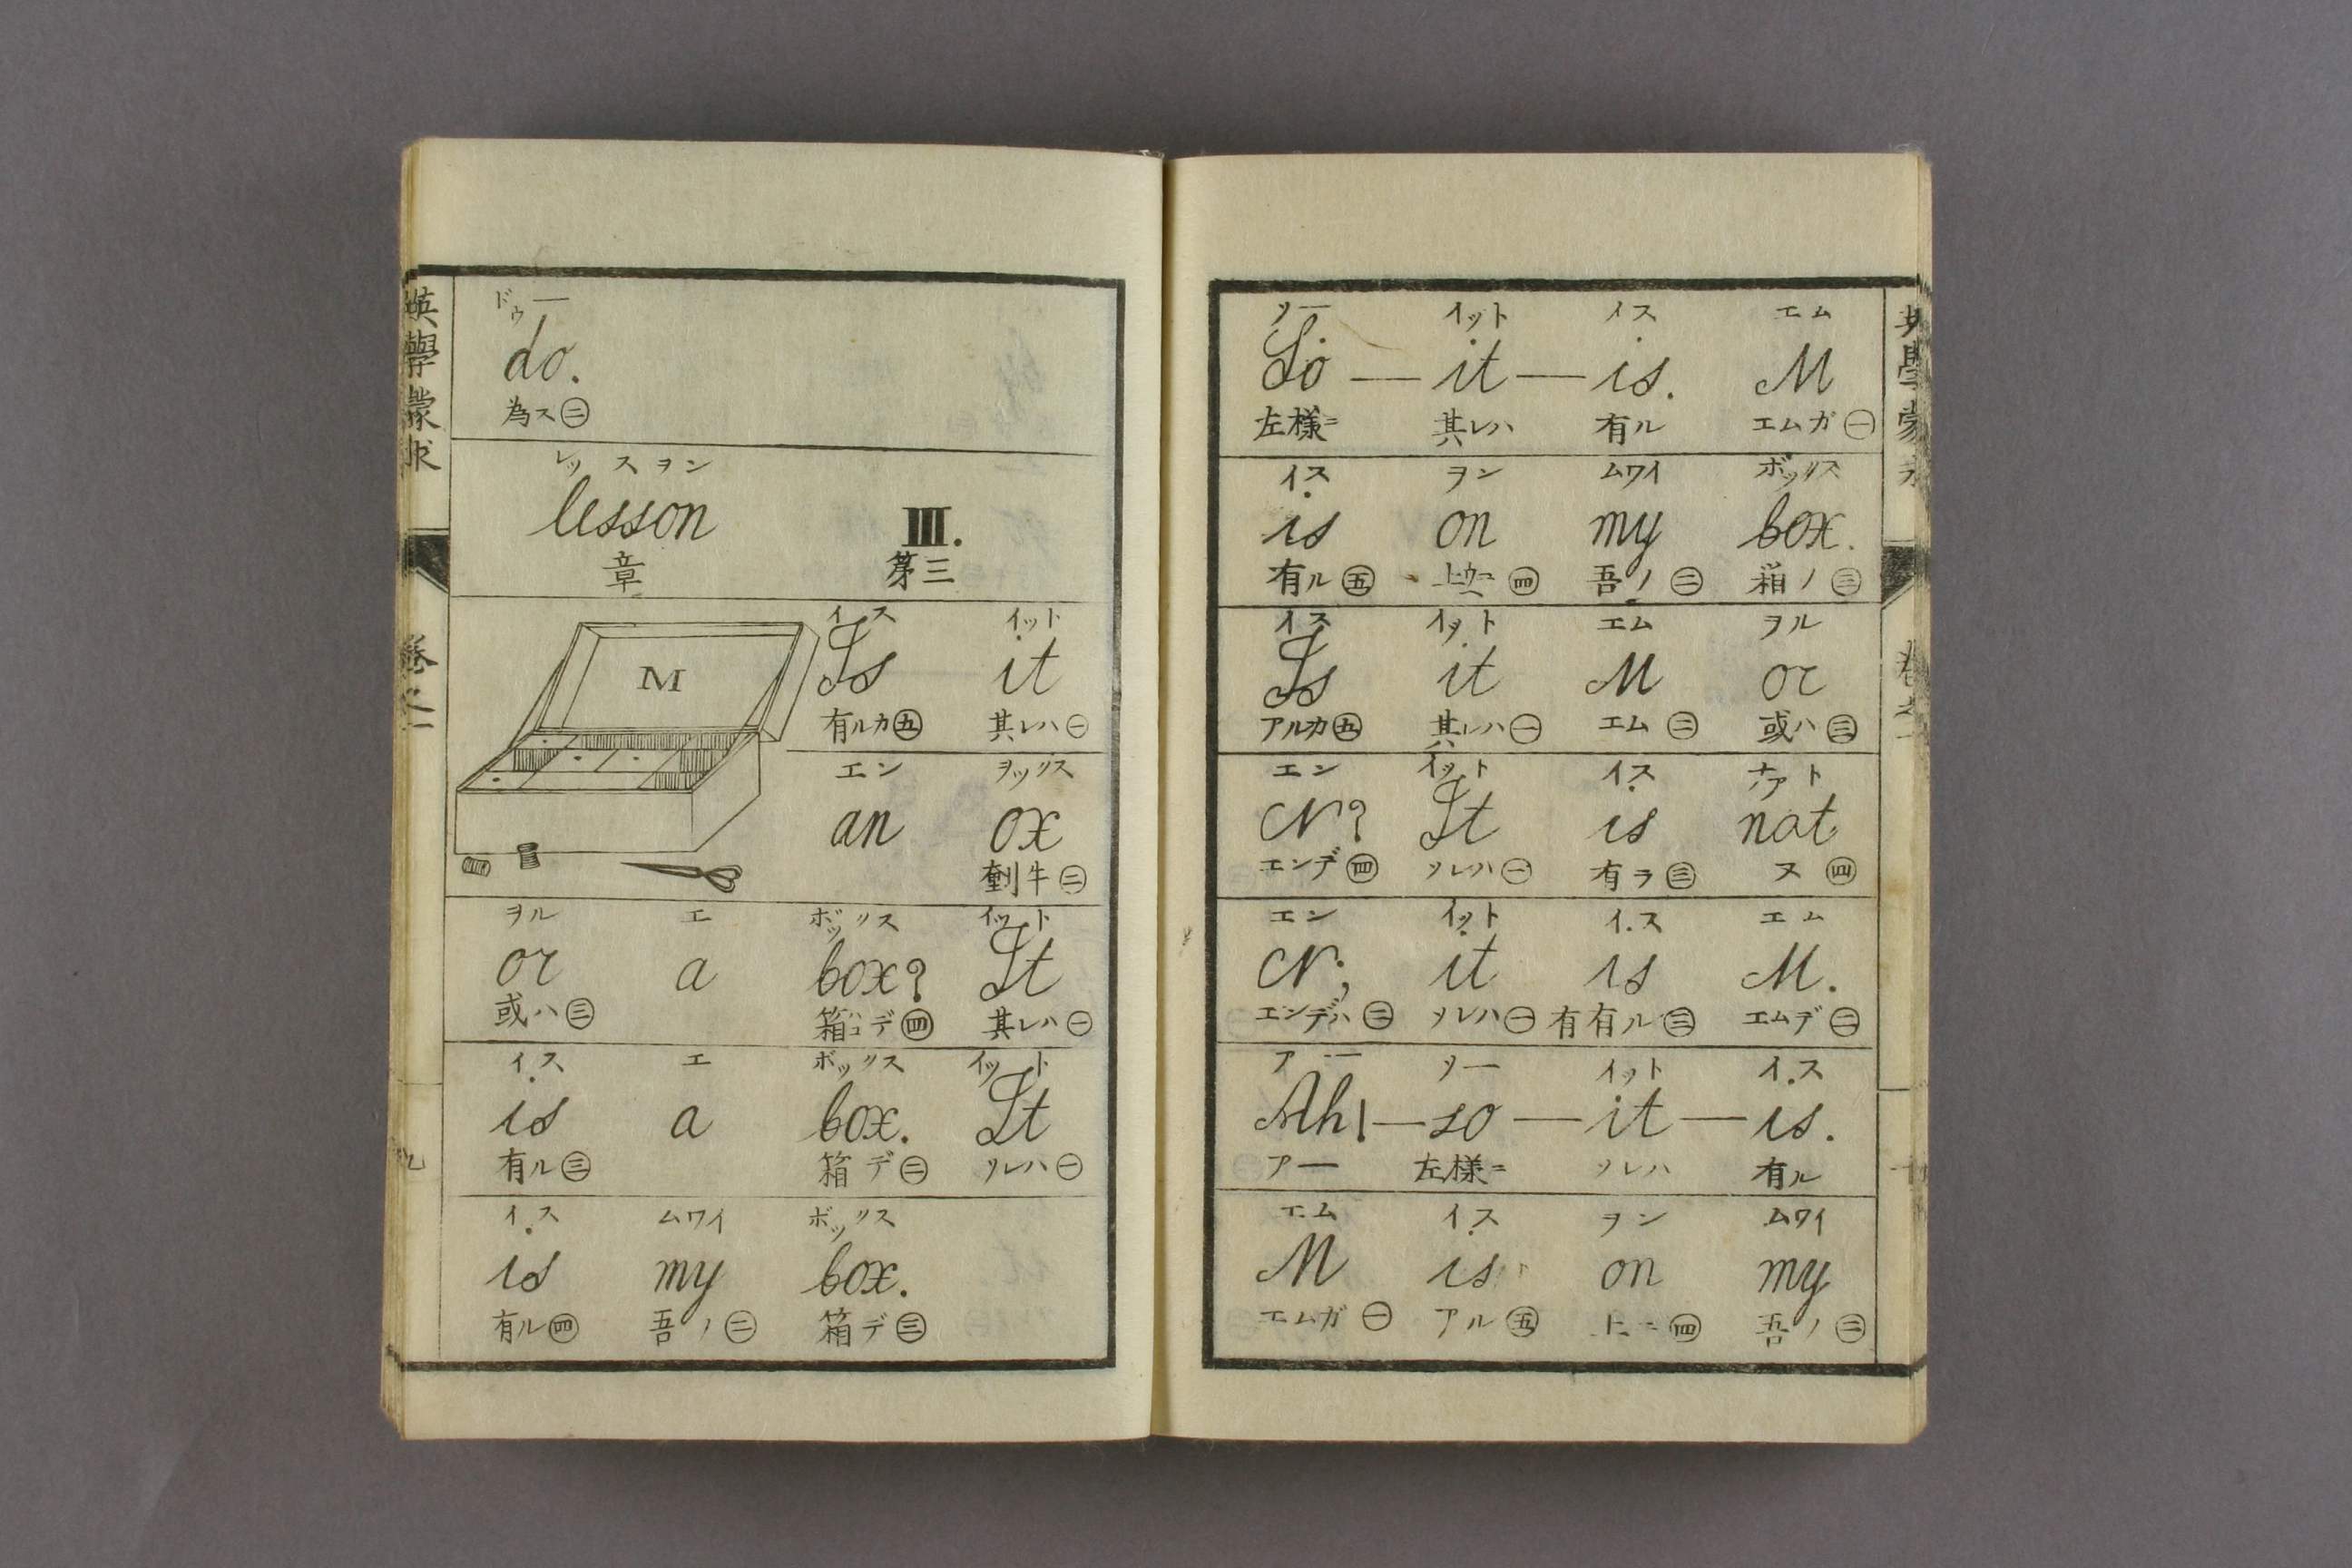 英學蒙求
卷之一
九
ドゥー
do.
為ス㊁
レッスヲン
lesson III.
章 第三
M
イス イット
Is it
有ルカ㊄ 其レハ㊀
エン ヲックス
an ox
牛㊁
ヲル エ ボックス イット
or a box? It
或ハ㊂ 箱デ㊃ 其レハ㊀
ハコ
イス エ ボックス イット
is a box. It
有ル㊂ 箱デ㊁ ソレハ㊀
イス ムワイ ボックス
is my box.
有ル㊃ 吾ノ㊁ 箱デ㊂
ソー イット イス エム
So — it — is. M
左様ニ 其レハ 有ル エムガ㊀
イス ヲン ムワイ ボックス
is on my box.
有ル㊄ 上ニ㊃ 吾ノ㊁ 箱ノ㊂
イス イット エム ヲル
Is it M or
アルカ㊄ 其レハ㊀ エム㊁ 或ハ㊂
エン イット イス ナアト
N? It is nat
エンデ㊃ ソレハ㊀ 有ラ㊂ ヌ㊃
エン イット イス エム
N; it is M.
エンデハ㊁ ソレハ㊀ 有有ル㊂ エムデ㊁
アー ソー イット イス
Ah! — so — it — is.
アー 左様ニ ソレハ 有ル
エム イス ヲン ムワイ
M is on my
エムガ㊀ アル㊄ 上ニ㊃ 吾ノ㊁
英學蒙求
卷之一
十